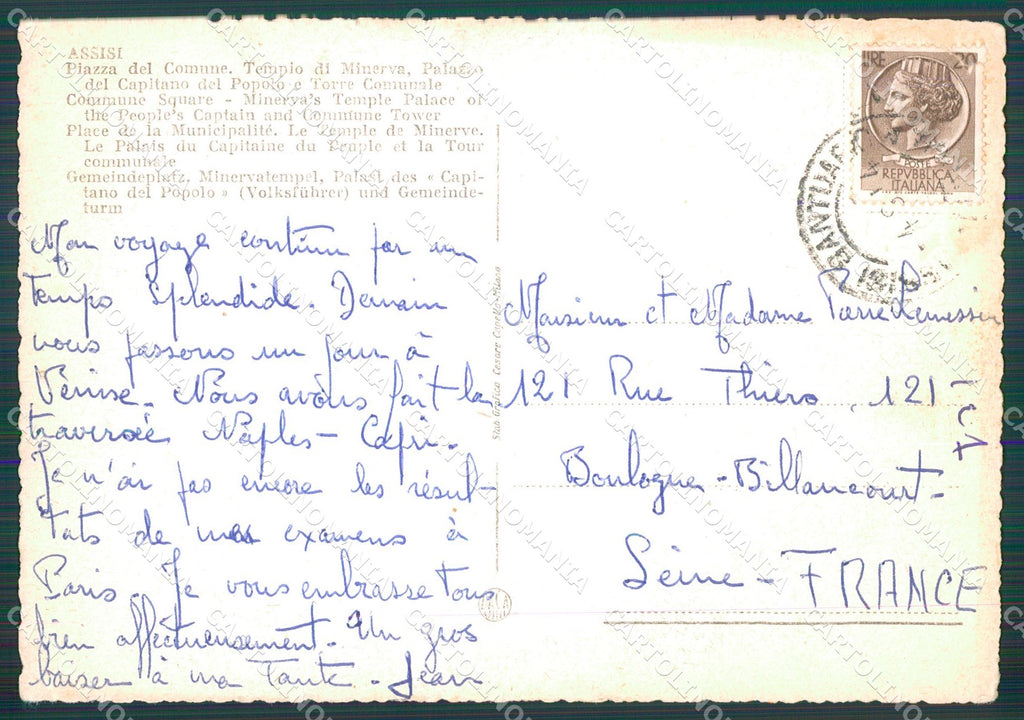 ASSISI
Piazza del Comune. Tempio di Minerva, Palazzo
del Capitano del Popolo e Torre Comunale
Commune Square - Minerva's Temple Palace of
the People's Captain and Commune Tower
Place de la Municipalité. Le Temple de Minerve.
Le Palais du Capitaine du Peuple et la Tour
communale
Gemeindeplatz, Minervatempel, Palast des « Capi-
tano del Popolo » (Volksführer) und Gemeinde-
turm
Mon voyage continue par un
temps splendide. Demain
nous passons un jour à
Venise. Nous avons fait la
traversée Naples - Capri.
Je n'ai pas encore les résul-
tats de mes examens à
Paris. Je vous embrasse tous
bien affectueusement. Un gros
baiser à ma Tante. Jean
LIRE 20
POSTE
REPVBBLICA
ITALIANA
Monsieur et Madame Pierre
121 Rue Thiers, 121
Boulogne-Billancourt-
Seine - FRANCE
CARTOLINOMANIA